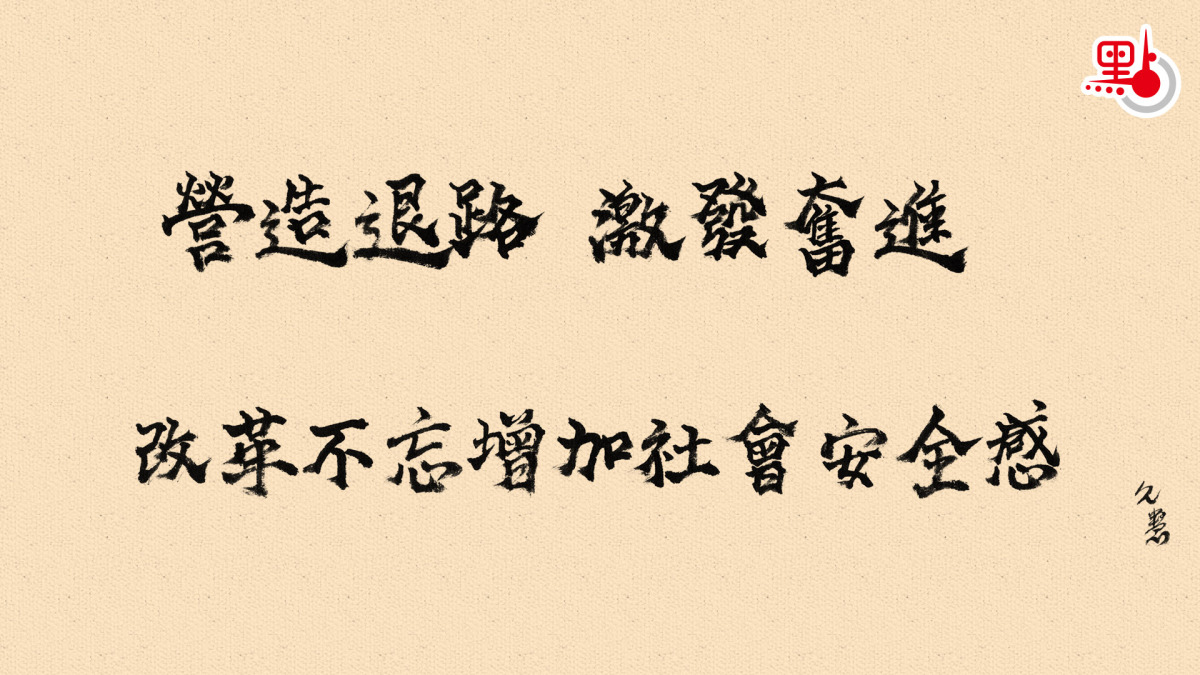 點
營造退路 激發奮進
改革不忘增加社會安全感
久慧